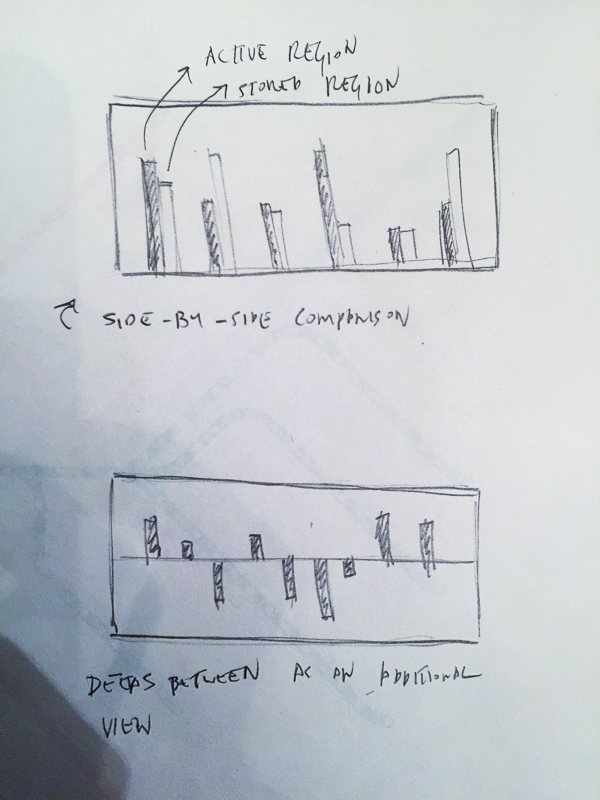 ACTIVE REGION
STORED REGION
SIDE-BY-SIDE COMPARISON
DELTAS BETWEEN AS AN ADDITIONAL
VIEW